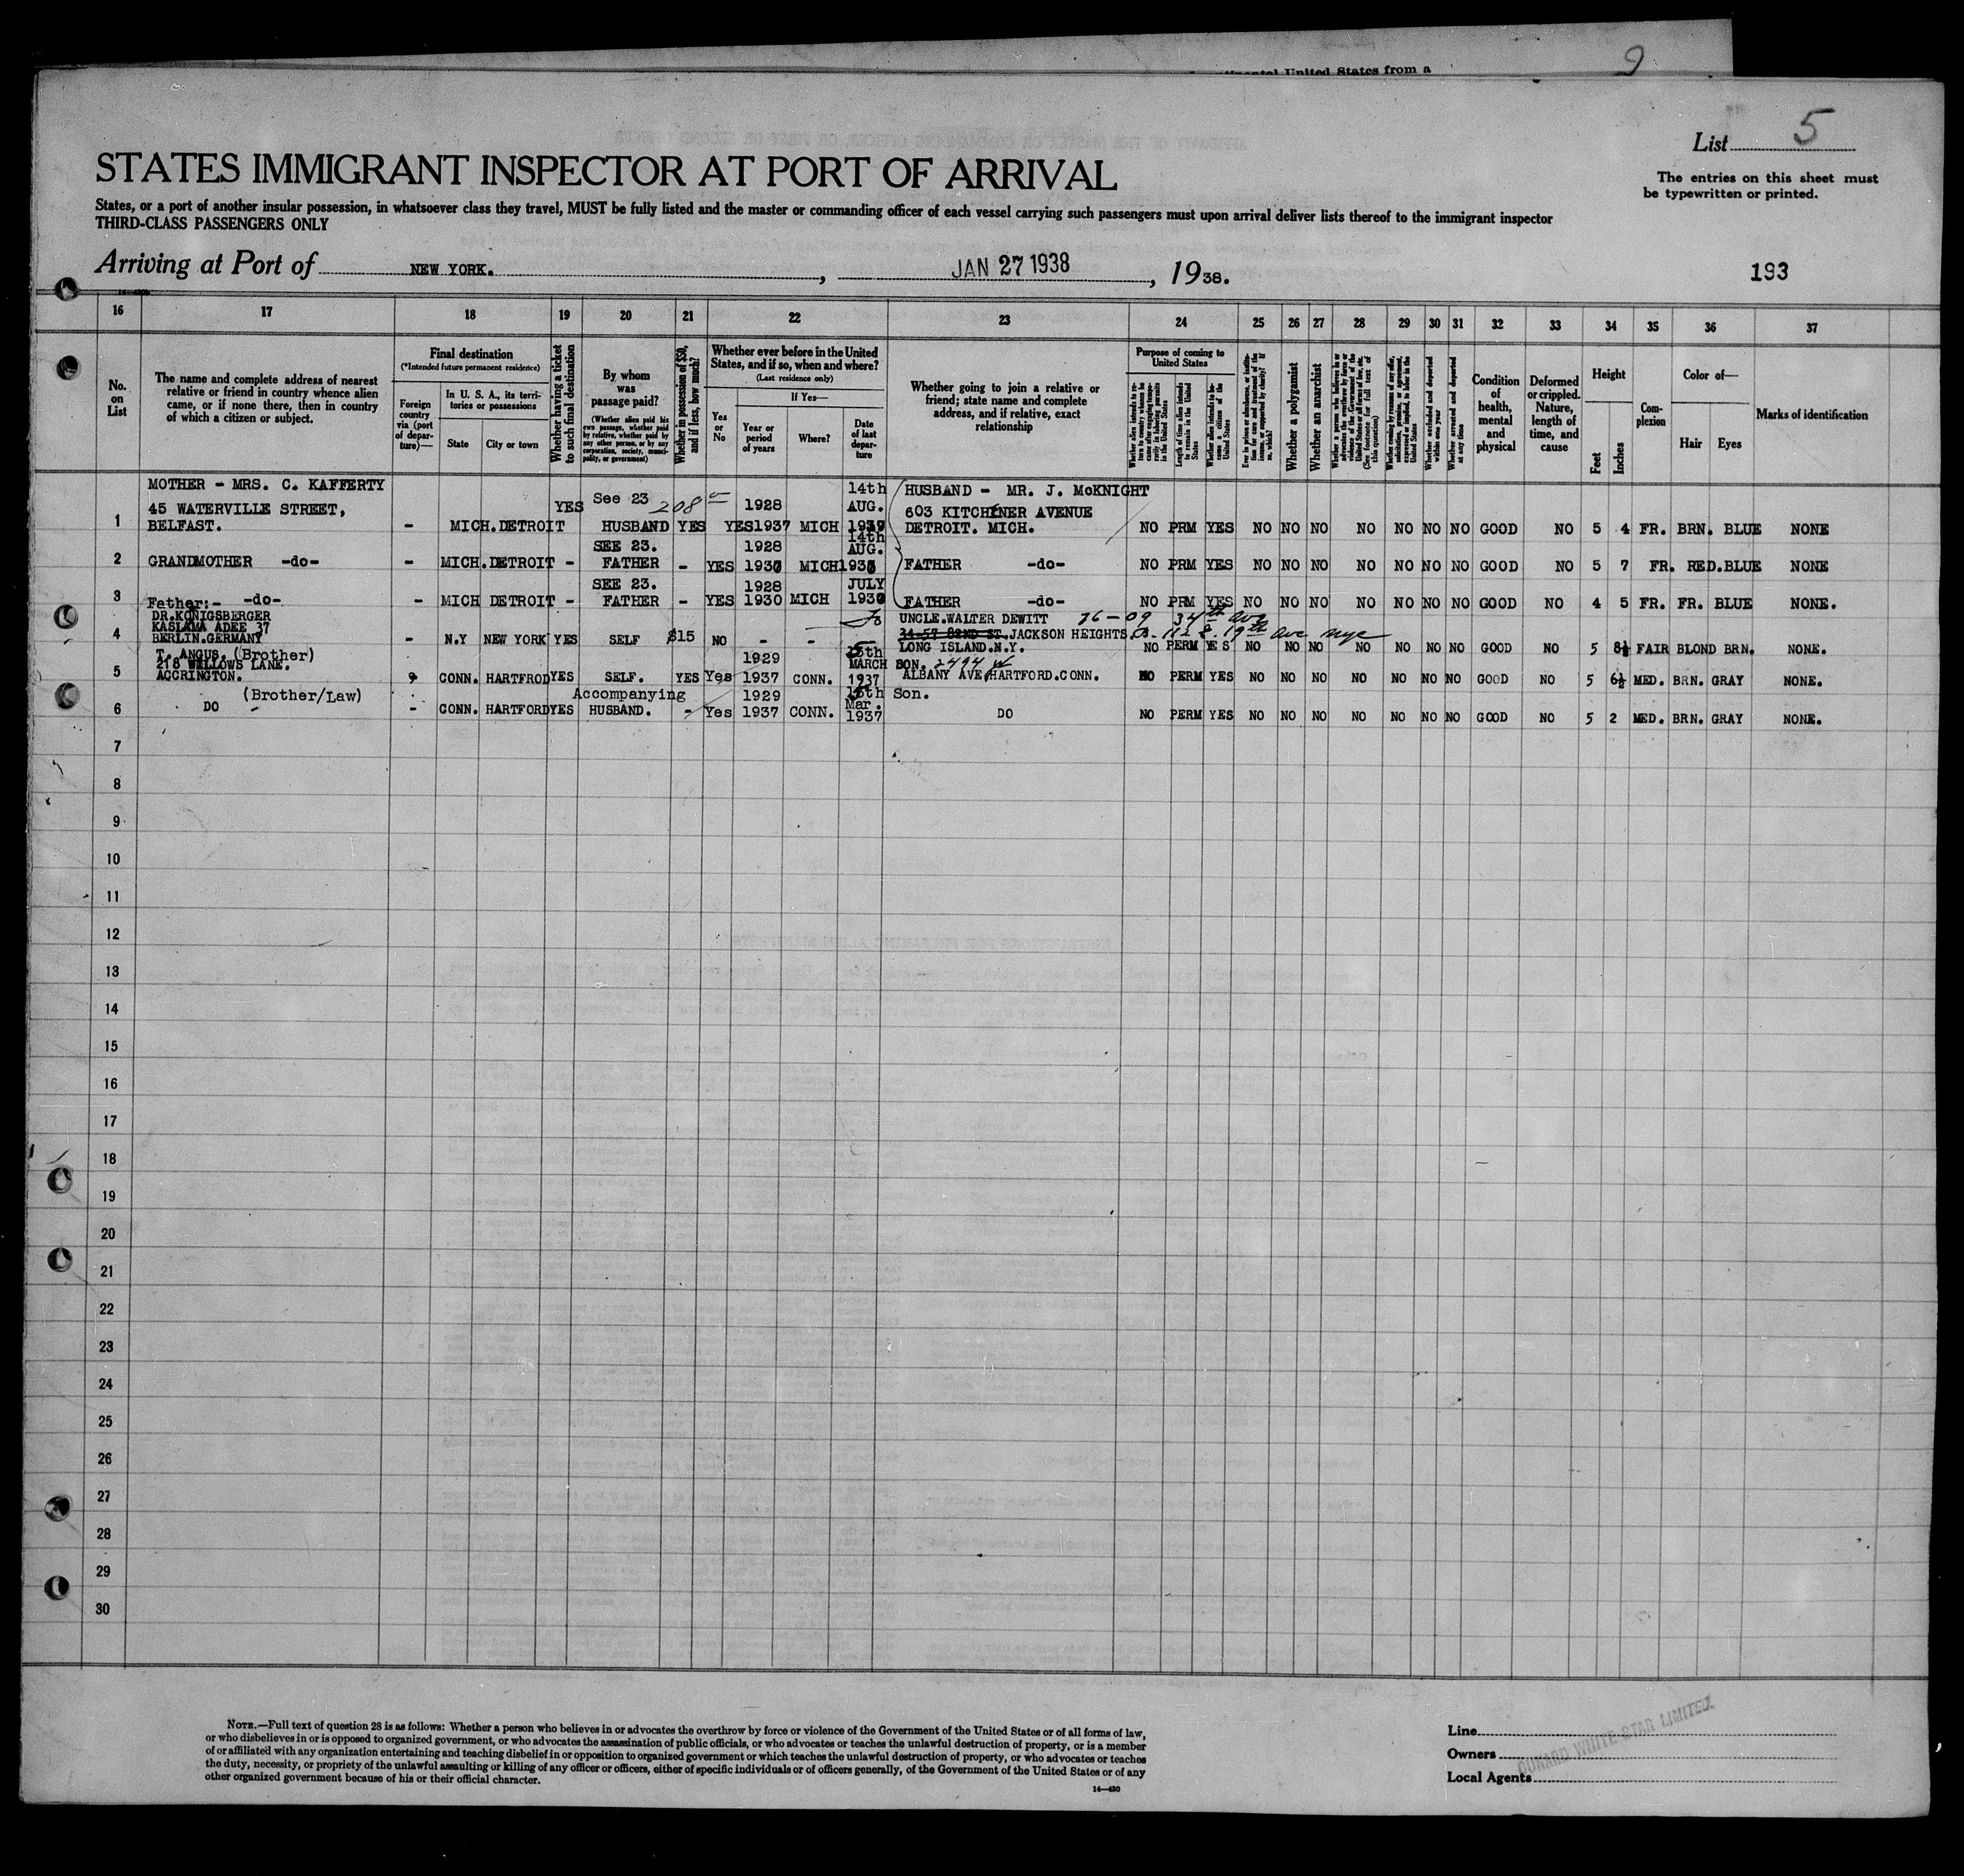 ntinental United States from a
9
List 5
The entries on this sheet must
be typewritten or printed.
STATES IMMIGRANT INSPECTOR AT PORT OF ARRIVAL
States, or a port of another insular possession, in whatsoever class they travel, MUST be fully listed and the master or commanding officer of each vessel carrying such passengers must upon arrival deliver lists thereof to the immigrant inspector
THIRD-CLASS PASSENGERS ONLY
Arriving at Port of NEW YORK. , JAN 27 1938 , 1938.
193
16 17 18 19 20 21 22 23 24 25 26 27 28 29 30 31 32 33 34 35 36 37
No. on List
The name and complete address of nearest
relative or friend in country whence alien
came, or if none there, then in country
of which a citizen or subject.
Final destination
(*Intended future permanent residence)
Foreign country via (port of departure)—
In U. S. A., its territories or possessions
State City or town
Whether having a ticket to such final destination
By whom was passage paid?
(Whether alien paid his own passage, whether paid by relative, whether paid by any other person, or by any corporation, society, municipality, or government)
Whether in possession of $50, and if less, how much?
Whether ever before in the United
States, and if so, when and where?
(Last residence only)
Yes or No
If Yes—
Year or period of years
Where?
Date of last departure
Whether going to join a relative or
friend; state name and complete
address, and if relative, exact
relationship
Purpose of coming to United States
Whether a polygamist
Whether an anarchist
Condition of health, mental and physical
Deformed or crippled. Nature, length of time, and cause
Height
Feet Inches
Complexion
Color of—
Hair Eyes
Marks of identification
MOTHER - MRS. C. KAFFERTY 14th HUSBAND - MR. J. McKNIGHT
45 WATERVILLE STREET, YES See 23 208 1928 AUG. 603 KITCHENER AVENUE
1 BELFAST. - MICH. DETROIT HUSBAND YES YES 1937 MICH DETROIT. MICH. NO PRM YES NO NO NO NO NO NO NO GOOD NO 5 4 FR. BRN. BLUE NONE
SEE 23. 1928 14th AUG.
2 GRANDMOTHER -do- - MICH. DETROIT - FATHER - YES MICH FATHER -do- NO PRM YES NO NO NO NO NO NO NO GOOD NO 5 7 FR. RED. BLUE NONE
SEE 23. 1928 JULY
3 -do- - MICH DETROIT - FATHER - YES 1930 MICH 1930 FATHER -do- NO PRM YES NO NO NO NO NO NO NO GOOD NO 4 5 FR. FR. BLUE NONE.
Father:-
DR.KONIGSBERGER UNCLE.WALTER DEWITT 76-09 34th Ave
KASLAMA ADEE 37 34-57 82ND ST. JACKSON HEIGHTS.
4 BERLIN.GERMANY - N.Y NEW YORK YES SELF $15 NO - - LONG ISLAND.N.Y. NO PERM YES NO NO NO NO NO NO NO GOOD NO 5 8½ FAIR BLOND BRN. NONE.
T. ANGUS. (Brother) 1929 15th
218 WILLOWS LANE. MARCH SON. 2494
5 ACCRINGTON. CONN. HARTFROD YES SELF. YES Yes 1937 CONN. 1937 ALBANY AVE HARTFORD.CONN. NO PERM YES NO NO NO NO NO NO NO GOOD NO 5 6½ MED. BRN. GRAY NONE.
(Brother/Law) Accompanying 1929 15th Son.
6 DO - - CONN. HARTFORD YES HUSBAND. - Yes 1937 CONN. Mar. 1937 DO NO PERM YES NO NO NO NO NO NO NO GOOD NO 5 2 MED. BRN. GRAY NONE.
7
8
9
10
11
12
13
14
15
16
17
18
19
20
21
22
23
24
25
26
27
28
29
30
NOTE.—Full text of question 28 is as follows: Whether a person who believes in or advocates the overthrow by force or violence of the Government of the United States or of all forms of law,
or who disbelieves in or is opposed to organized government, or who advocates the assassination of public officials, or who advocates or teaches the unlawful destruction of property, or is a member
of or affiliated with any organization entertaining and teaching disbelief in or opposition to organized government or which teaches the unlawful destruction of property, or who advocates or teaches
the duty, necessity, or propriety of the unlawful assaulting or killing of any officer or officers, either of specific individuals or of officers generally, of the Government of the United States or of any
other organized government because of his or their official character.
14—430
Line
Owners
Local Agents
CUNARD WHITE STAR LIMITED.